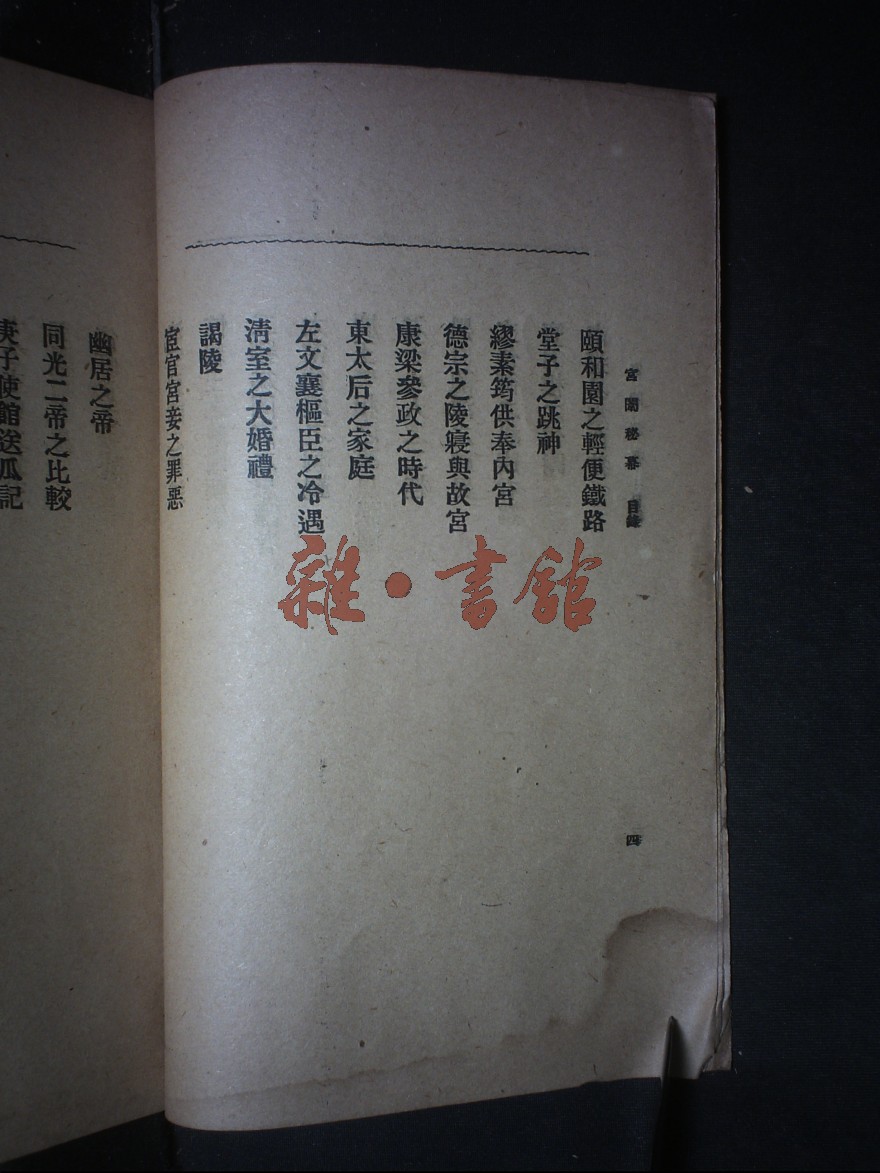 宮闈秘幕 目錄
四
頤和園之輕便鐵路
堂子之跳神
繆素筠供奉內宮
德宗之陵寢與故宮
康梁參政之時代
東太后之家庭
左文襄樞臣之冷遇
淸室之大婚禮
謁陵
宦官宮妾之罪惡
幽居之帝
同光二帝之比較
庚子使館送瓜記
雜·書館